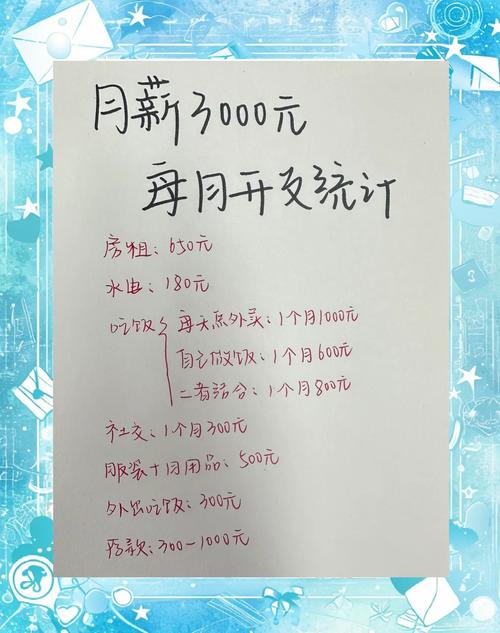 月薪3000元
每月开支统计
房租：650元
水电：180元
吃饭{每天点外卖：1个月1000元
自己做饭：1个月600元
二者结合：1个月800元
社交：1个月300元
服装+日用品：500元
外出吃饭：300元
存款：300-1000元